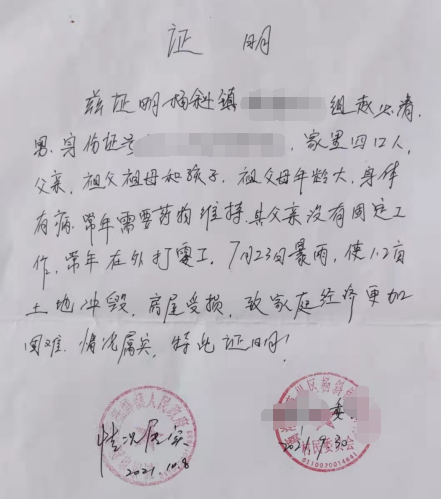 证 明
兹证明杨斜镇 组赵必清,
男.身份证号 ,家里四口人,
父亲,祖父祖母和孩子.祖父母年龄大,身体
有病.常年需要药物维持.其父亲没有固定工
作,常年在外打零工.7月23日暴雨,使1.2亩
土地冲毁,房屋受损,致家庭经济更加
困难.情况属实,特此证明!
情况属实
2021.10.8
委.
2021.9.30